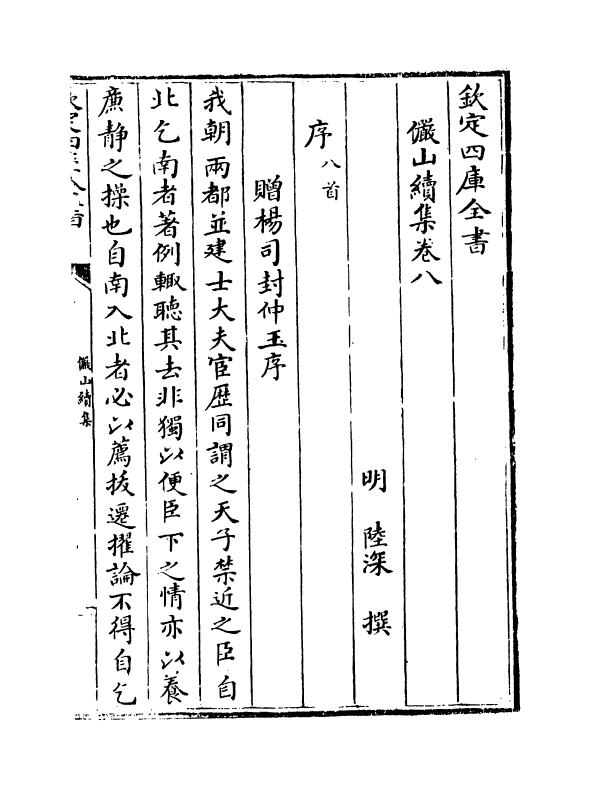 欽定四庫全書
儼山續集卷八
明 陸深 撰
序八首
贈楊司封仲玉序
我朝兩都並建士大夫宦歴同謂之天子禁近之臣自
北乞南者著例輙聽其去非獨以便臣下之情亦以養
廉静之操也自南入北者必以薦拔遷擢論不得自乞
欽定四庫全書
儼山續集